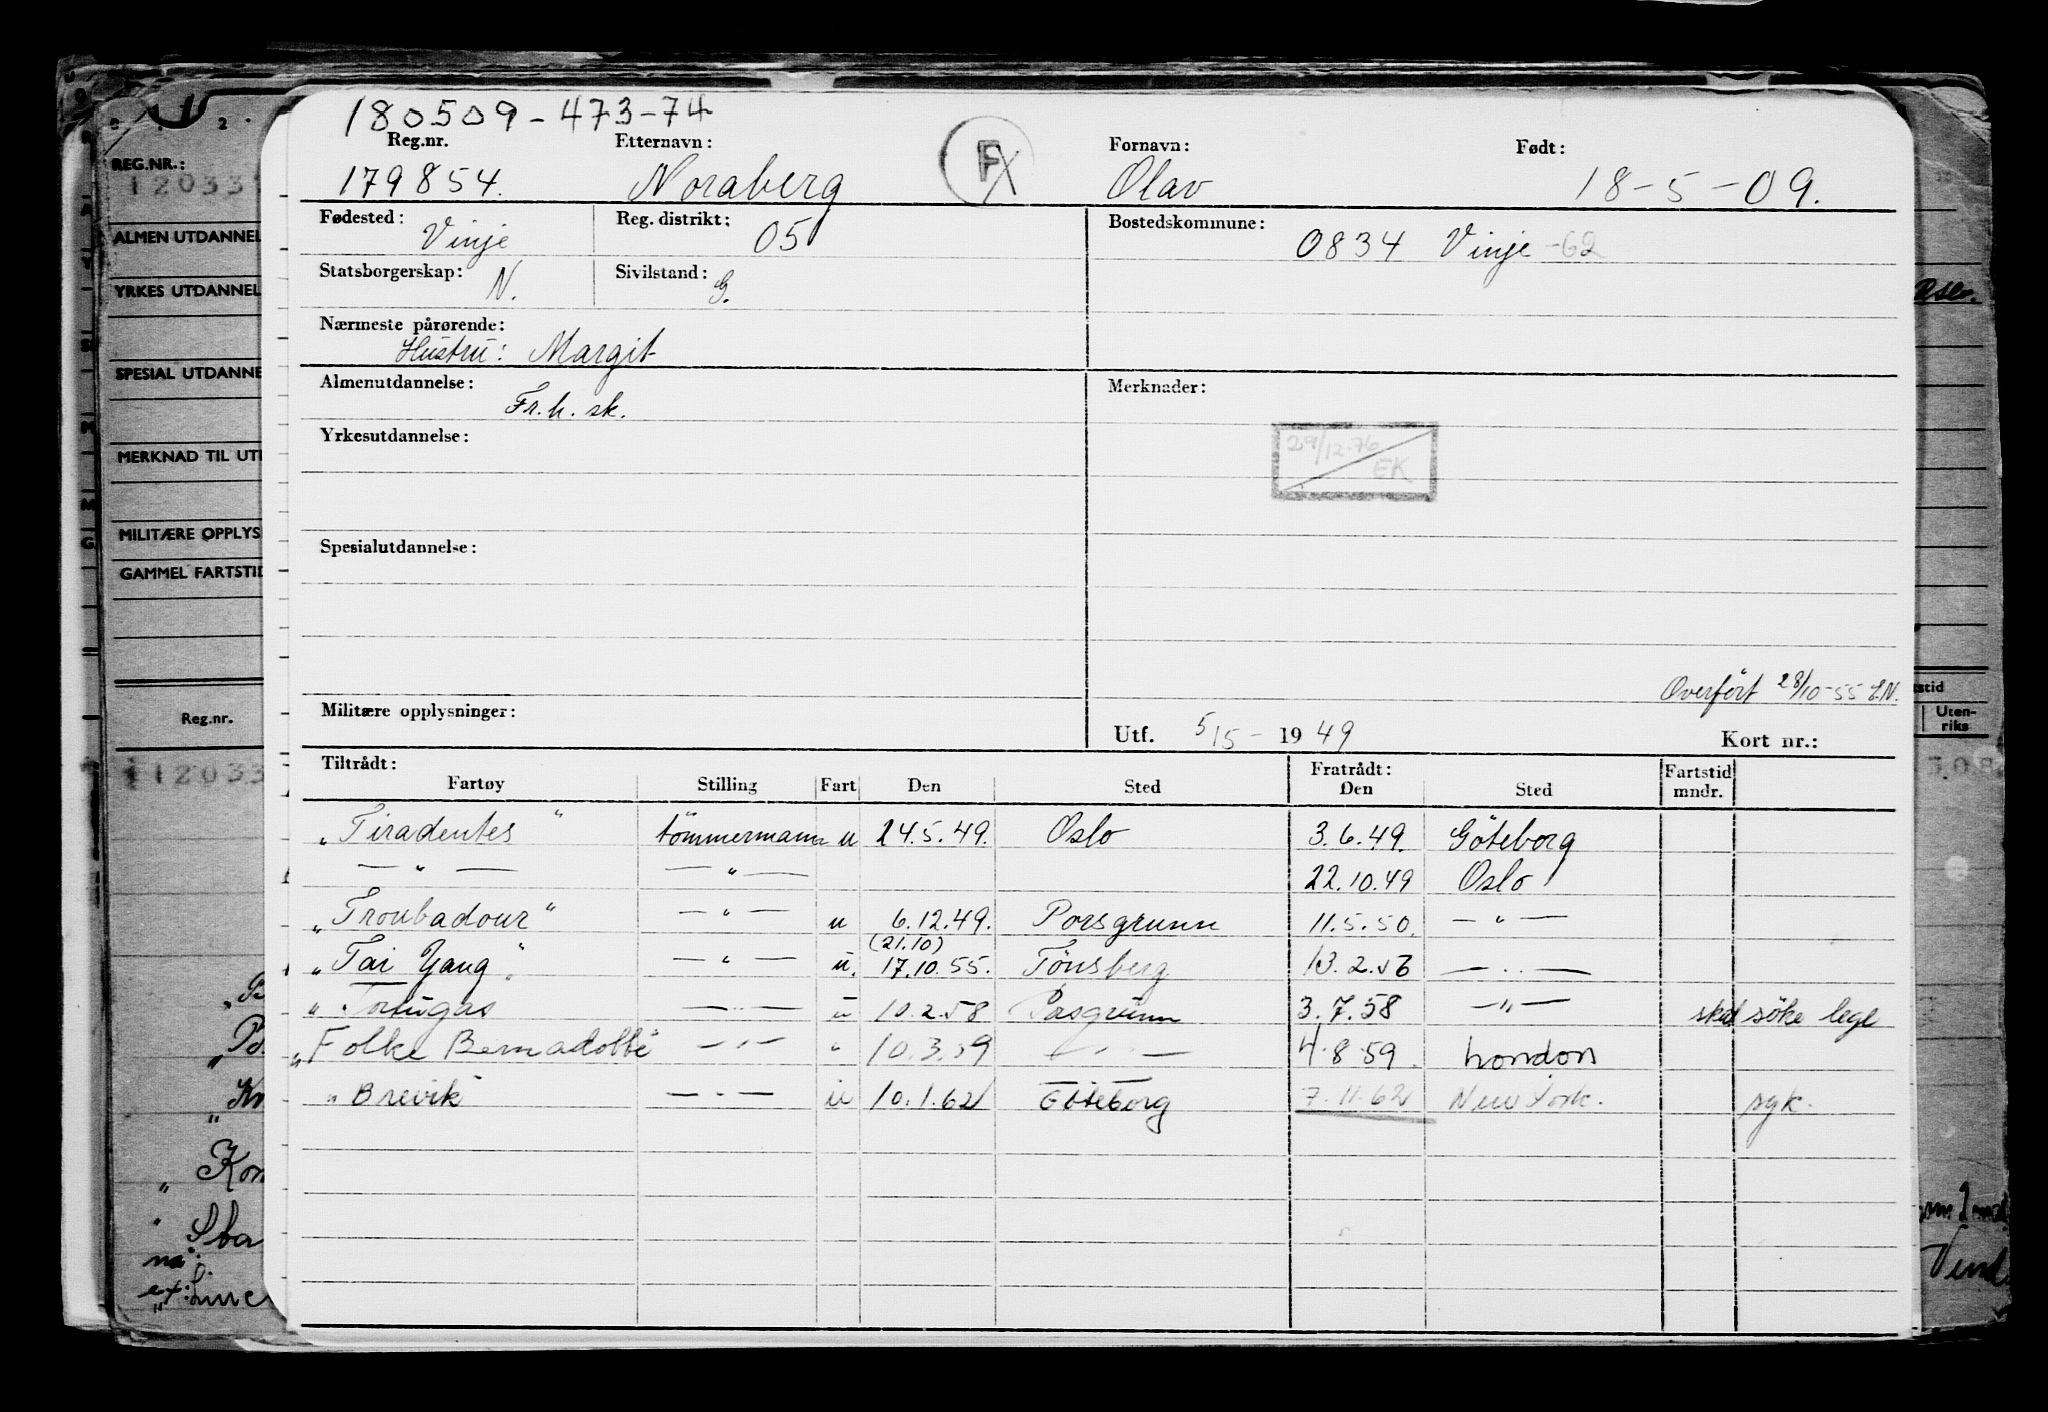 180509-473-74
Reg.nr. Etternavn: Fornavn: Født:
179854. Noraberg F Olav 18-5-09.
Fødested: Vinje Reg. distrikt: 05 Bostedskommune: 0834 Vinje -62
Statsborgerskap: N. Sivilstand: G.
Nærmeste pårørende:
Hustru: Margit
Almenutdannelse: Merknader:
Fr.h. sk.
29/12-76 EK
Yrkesutdannelse:
Spesialutdannelse:
Overført 28/10-55
Militære opplysninger:
Utf. 5/5- 1949 Kort nr.:
Tiltrådt: Fratrådt: Fartstid
Fartøy Stilling Fart Den Sted Den Sted mndr.
"Tiradentes" tömmermann u 24.5.49. Oslo 3.6.49. Göteborg
— " — — " — 22.10.49 Oslo
"Troubadour" — " — u 6.12.49. Porsgrunn 11.5.50. — " —
(21.10)
"Tai Yang" — " — u. 17.10.55. Tönsberg 13.2.56 — " —
"Tortugas — " — u 10.2.58 Posgrunn 3.7.58 — " — skal söke lege
"Folke Bernadotte" — " — " 10.3.59 — " — 4.8.59. London
"Brevik" — " — u 10.1.62 Göteborg 7.11.62 New York. syk.
REG.NR.:
12033
ALMEN UTDANNEL
YRKES UTDANNEL
Oslo.
SPESIAL UTDANNE
MERKNAD TIL UT
MILITÆRE OPPLYS
GAMMEL FARTSTID
Reg.nr.
Uten-
riks
12033